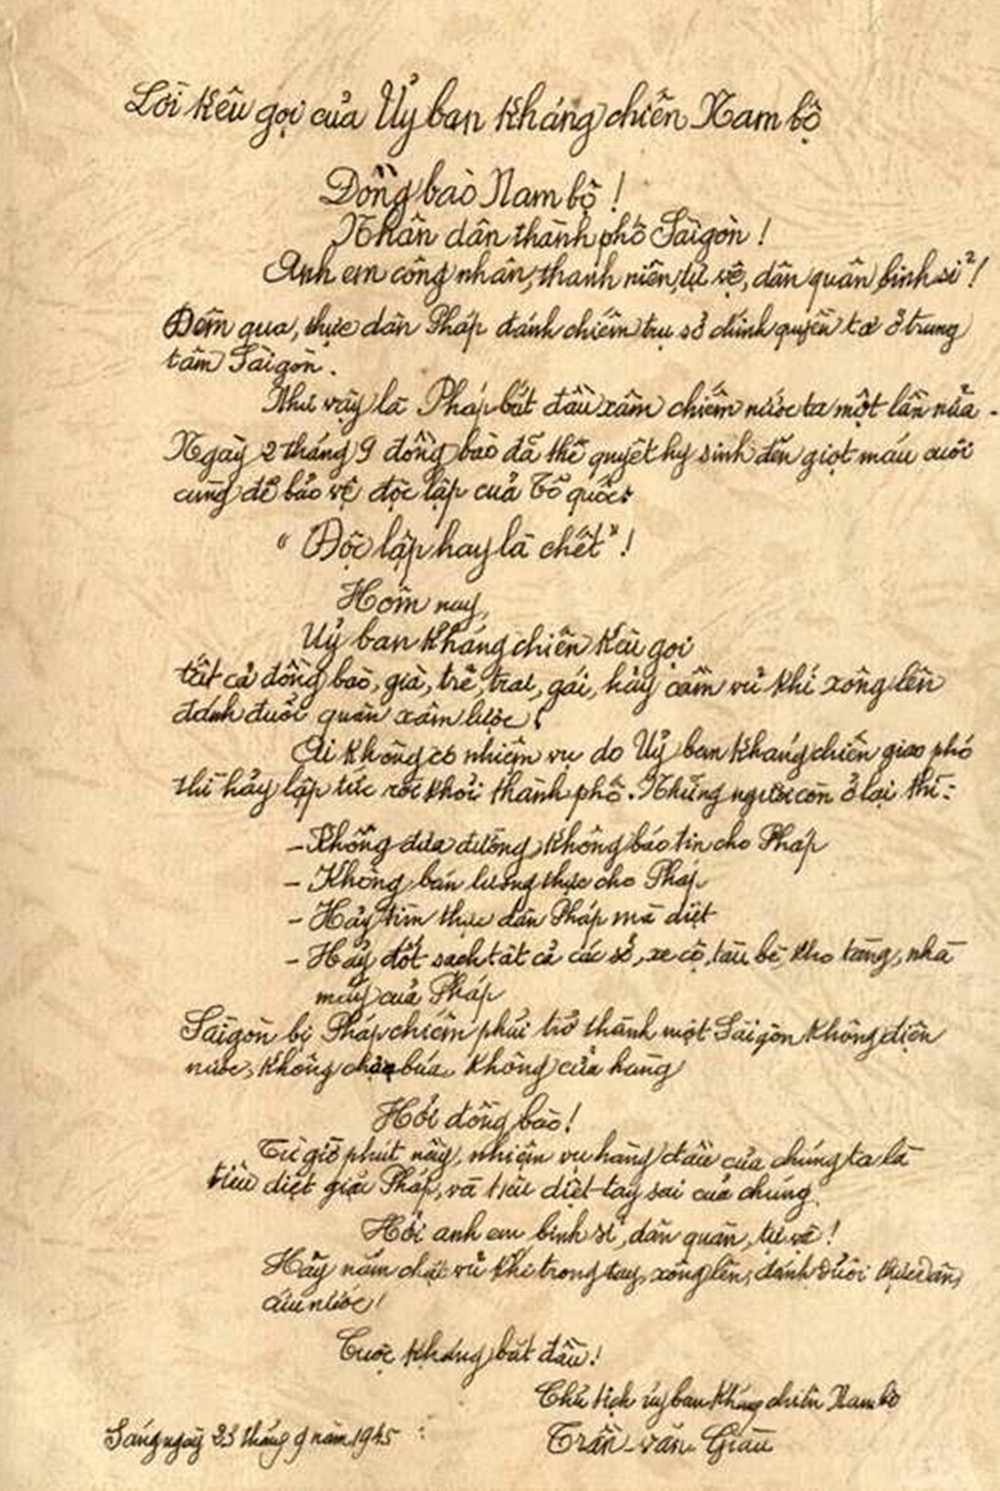 Lời kêu gọi của Ủy ban kháng chiến Nam bộ
Đồng bào Nam bộ !
Nhân dân thành phố Sàigòn !
Anh em công nhân, thanh niên, tự vệ, dân quân, binh sĩ !
Đêm qua, thực dân Pháp đánh chiếm trụ sở chính quyền ta ở trung
tâm Sàigòn.
Như vậy là Pháp bắt đầu xâm chiếm nước ta một lần nữa.
Ngày 2 tháng 9 đồng bào đã thề quyết hy sinh đến giọt máu cuối
cùng để bảo vệ độc lập của Tổ quốc:
"Độc lập hay là chết" !
Hôm nay,
Uỷ ban kháng chiến kêu gọi
tất cả đồng bào, già, trẻ, trai, gái, hãy cầm vũ khí xông lên
đánh đuổi quân xâm lược !
Ai không có nhiệm vụ do Uỷ ban kháng chiến giao phó
thì hãy lập tức rời khỏi thành phố. Những người còn ở lại thì:
- Không đưa đường, không báo tin cho Pháp
- Không bán lương thực cho Pháp
- Hãy tìm thực dân Pháp mà diệt
- Hãy đốt sạch tất cả các sở, xe cộ, tàu bè, kho tàng, nhà
máy của Pháp
Sàigòn bị Pháp chiếm phải trở thành một Sàigòn không điện
nước, không chợ búa, không cửa hàng
Hỡi đồng bào !
Từ giờ phút này, nhiệm vụ hàng đầu của chúng ta là
tiêu diệt giặc Pháp, và tiêu diệt tay sai của chúng.
Hỡi anh em binh sĩ, dân quân, tự vệ !
Hãy nắm chắc vũ khí trong tay, xông lên, đánh đuổi thực dân,
cứu nước !
Cuộc kháng bắt đầu !
Chủ tịch ủy ban kháng chiến Nam bộ
Sáng ngày 23 tháng 9 năm 1945
Trần văn Giàu